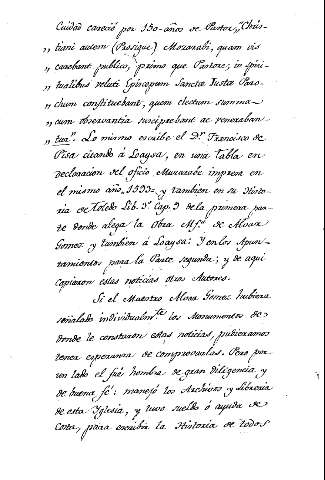 Ciudad careció por 350 años de Pastor, "Chris-
„ tiani autem (Prosigue) Mozarabi, quam vis
„ carebant publico, primo que Pastore; in spiri-
„ tualibus veluti Episcopum Sanctæ Justæ Paro-
„ chum constituebant, quem electum summa
„ cum observantia suscipiebant ac venerabant
„ tur". Lo mismo escribe el Dr. Francisco de
Pisa citando á Loaysa, en una Tabla en
declaracion del oficio Muzarabe impresa en
el mismo año, 1593 y tambien en su Histo-
ria de Toledo Lib. 3º Cap. 9 de la primera par-
te donde alega la Obra Ms. de Alvar
Gomez y tambien á Loaysa: Y en los Apun-
tamientos para la Parte segunda; y de aqui
copiaron estas noticias otros Autores.
Si el Maestro Alvar Gomez hubiera
señalado individualmte los Monumentos de
donde le constaron estas noticias, pudieramos
tener esperanza de comprovarlas. Pero por
un lado el fué hombre de gran diligencia y
de buena fé: manejó los Archivos y Libreria
de esta Iglesia, y tuvo sueldo ó ayuda de
Costa, para escribir la Historia de todos